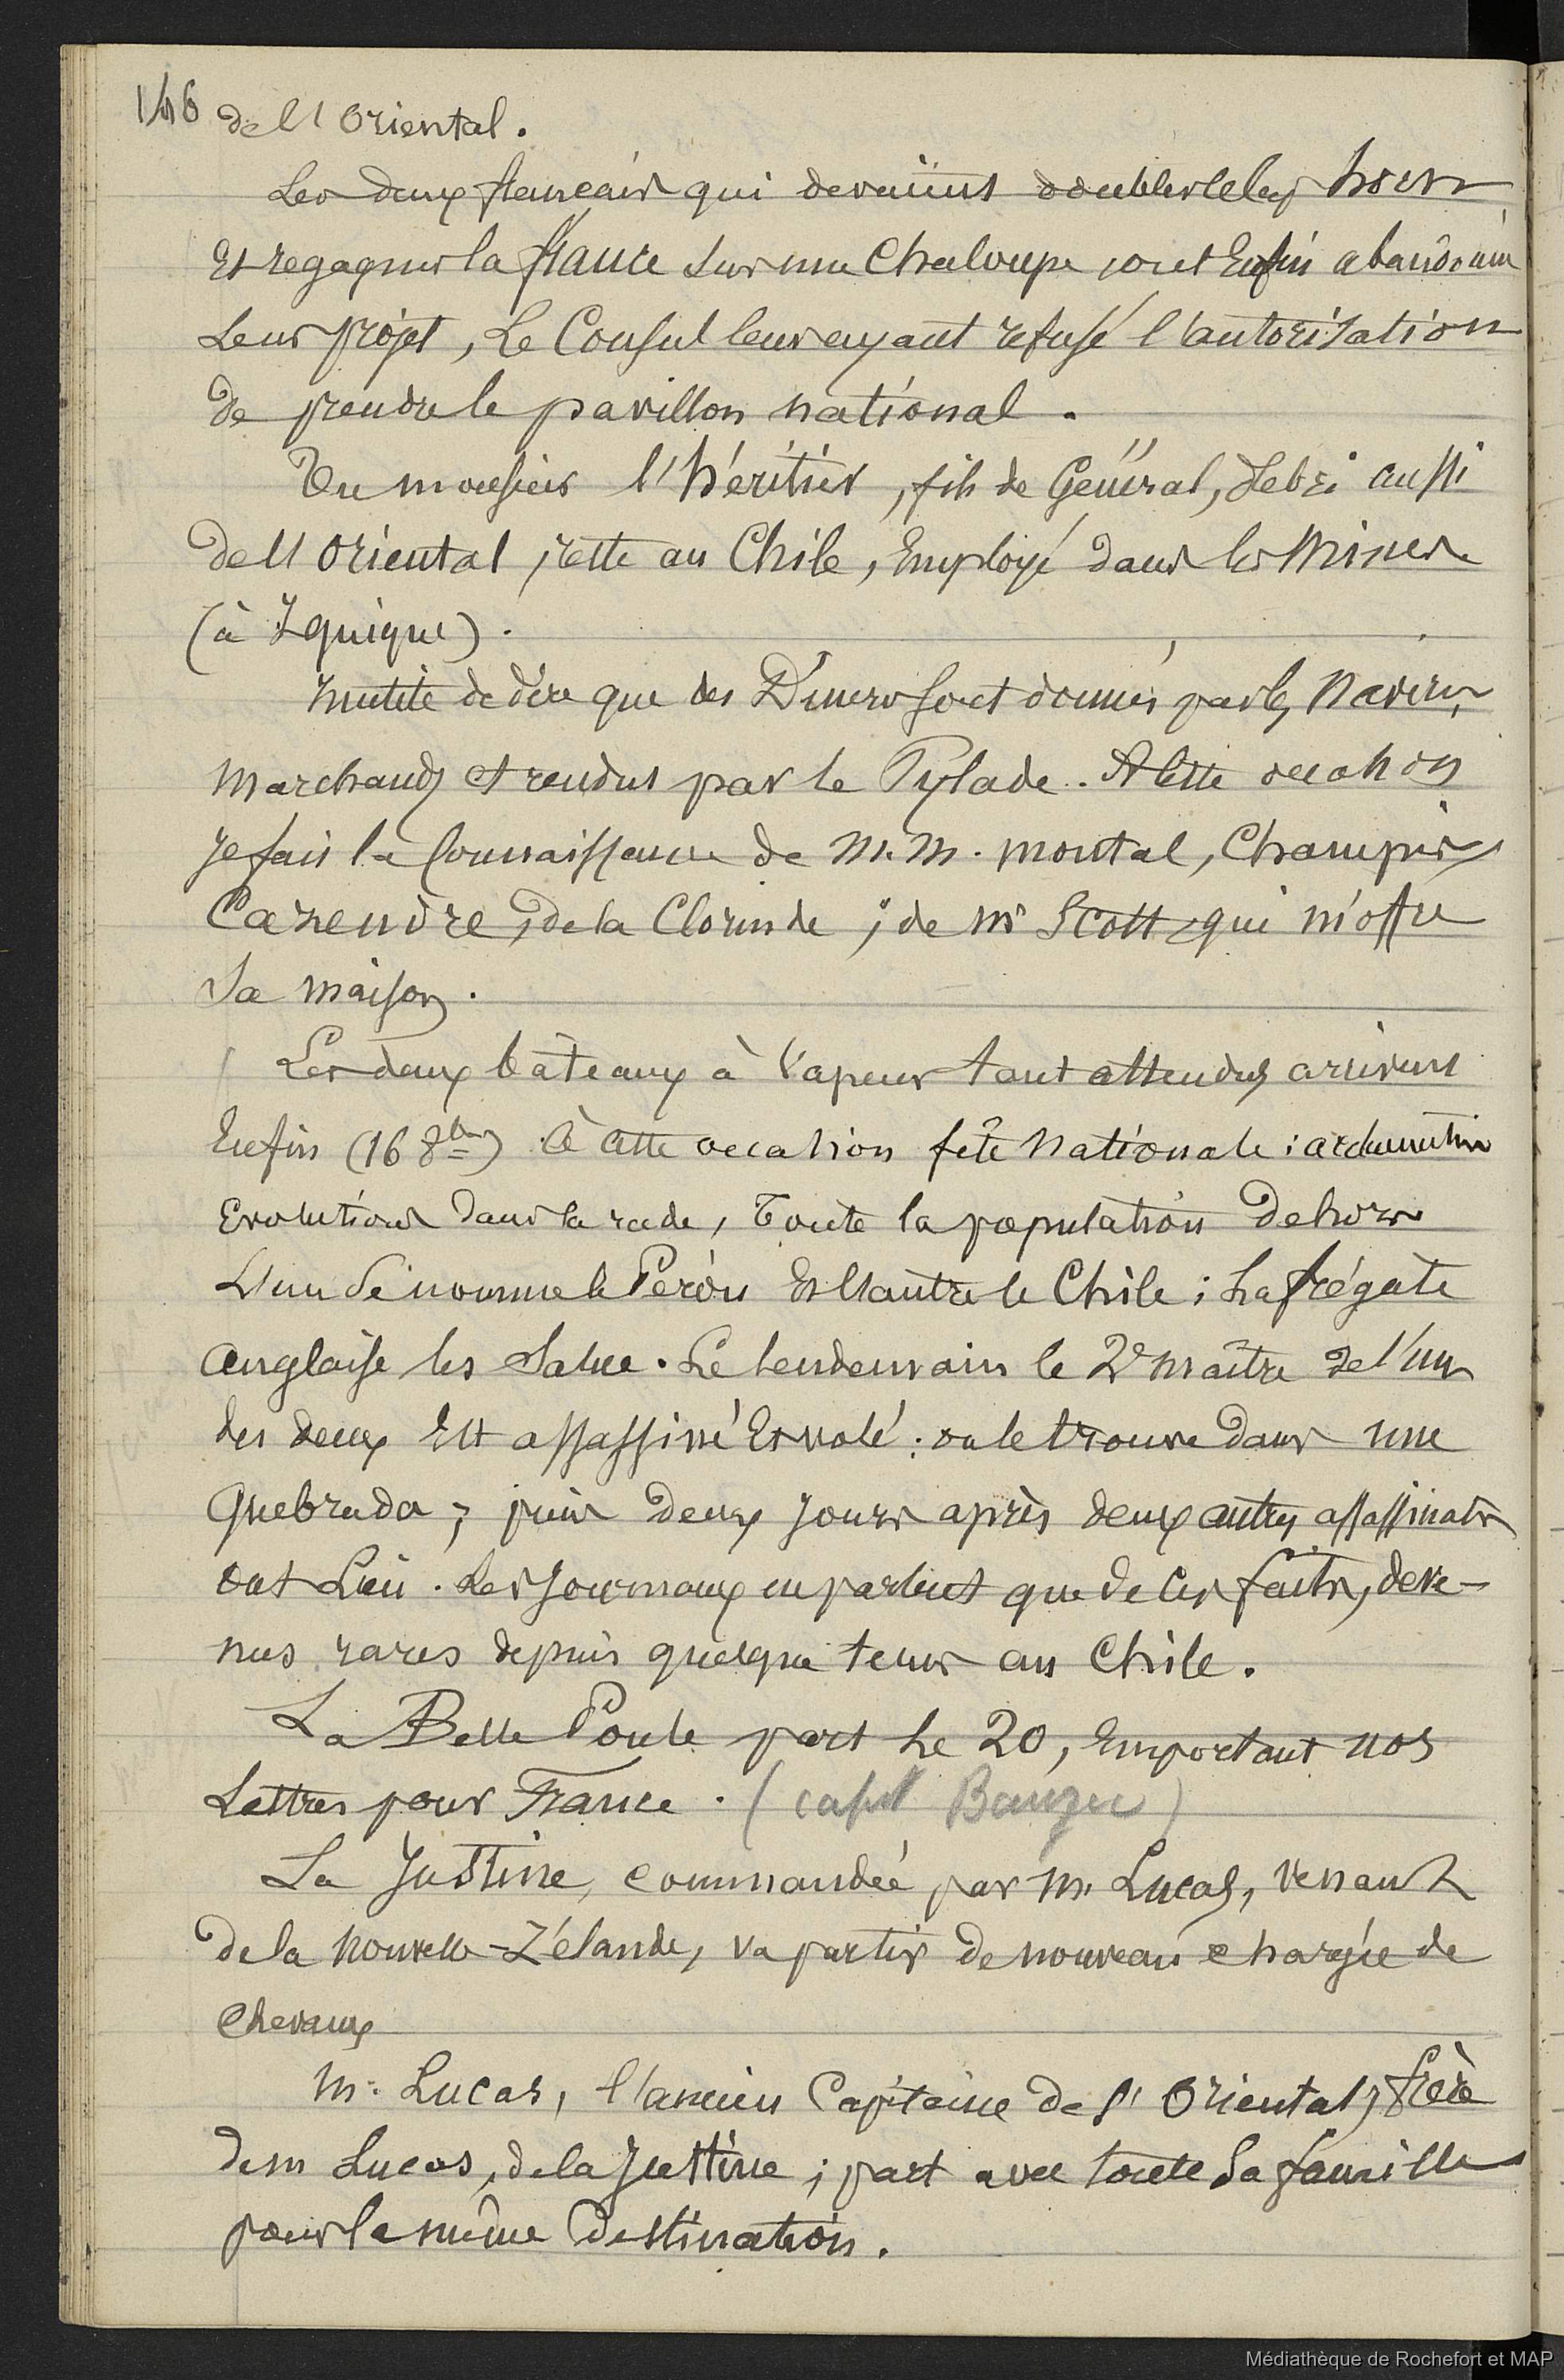 146 de l'Oriental.
Les deux français qui devaient doubler le Cap horn
Et regagner la france sur une Chaloupe ont Enfin abandonné
Leur projet, Le Consul leur ayant refusé l'autorisation
de prendre le pavillon national.
Un monsieur l'héritier, fils de Général, débri aussi
de l'Oriental, reste au Chile, Employé dans les Mines
(à Iquique).
Inutile de dire que des Dîners sont donnés par les Navires
marchands et rendus par le Pylade. A cette occasion
je fais la connaissance de M.M. montal, Champier,
Cazendre, de la Clorinde; de Mr Scott qui m'offre
Sa maison.
Les deux bâteaux à Vapeur tant attendus arrivent
Enfin (16 8bre) à cette occasion fête Nationale:
Evolutions dans la rade, Toute la population Dehors
L'un se nomme le Pérou Et l'autre le Chile; La frégate
anglaise les Salue. Le lendemain le 2e maître de l'un
des deux Est assassiné Et volé: on le trouve dans une
quebrada; puis Deux Jours après deux autres assassinats
ont Lieu. Les Journaux ne parlent que de ces faits, deve-
nus rares depuis quelque tems au Chile.
La Belle Poule part Le 20, Emportant nos
Lettres pour France. (
La Justine, commandée par M. Lucas, venant
de la Nouvelle-Zélande, va partir de nouveau chargée de
Chevaux
M. Lucas, l'ancien Capitaine de l'Oriental, frère
de m Lucas, de la Justine; part avec toute Sa famille
pour la même Destination.
Médiathèque de Rochefort et MAP